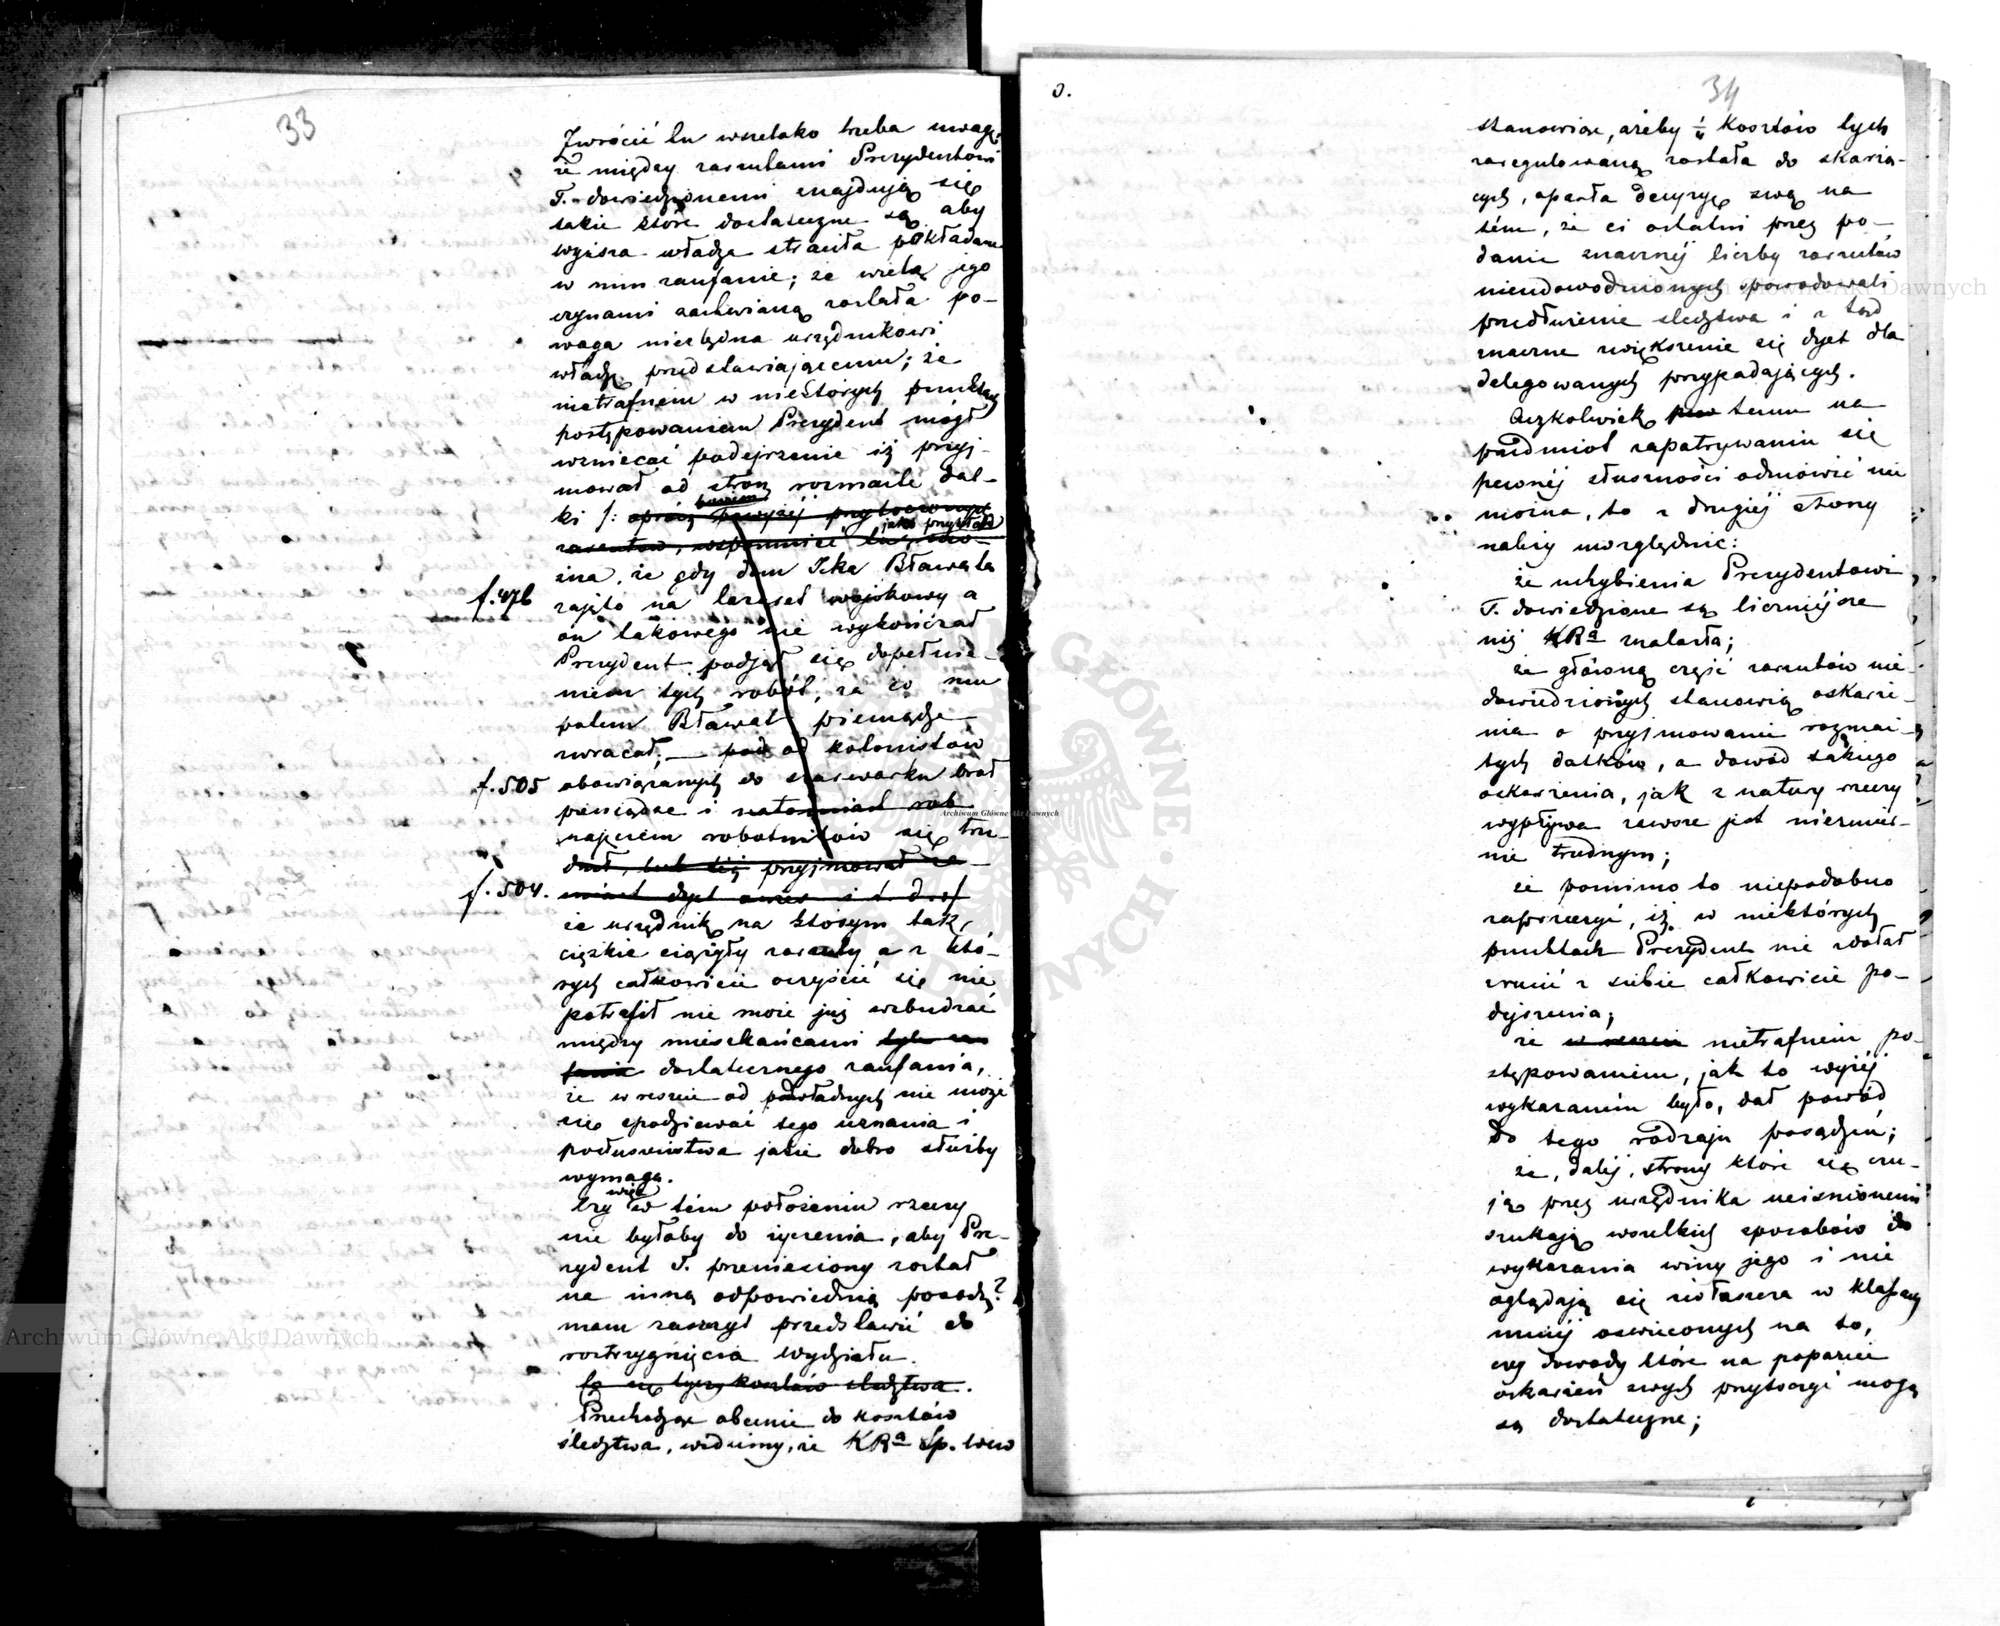 33
Zwrócić tu wszelako trzeba uwagę,
że między zarzutami Prezydentowi
T. dowiedzionemi znajdują się
takie które dostateczne są aby
wyższa władza straciła pokładane
w nim zaufanie; że wielą jego
czynami zachwianą została po-
waga niezbędna urzędnikowi
władzę przedstawiającemu; że
nietrafnem w niektórych punktach
postępowaniem Prezydent mógł
wzniecać podejrzenie iż przyj-
mował od stron rozmaite dat-
ki /: oprócz powyżej przytoczonych
bowiem
zarzutów, wspomnieć tu mo-
jako przykład
żna, że gdy dom Icka Bławata
f. 476
zajęto na lazaret wojskowy a
on takowego nie wykończał
Prezydent podjął się dopełnie-
niem tych robót, za co mu
potem Bławat pieniądze
zwracał; — od kolonistów
f. 505
obowiązanych do szarwarku brał
pieniądze i natomiast rob
najęciem robotników się tru-
dnił, lub też przyjmował za-
f. 504.
miast dyet owies i t. d. :/
że urzędnik na którym tak
ciężkie ciążyły zarzuty a z któ-
rych całkowicie oczyścić się nie
potrafił nie może już wzbudzać
między mieszkańcami tyle za-
fania dostatecznego zaufania,
że wreszcie od podwładnych nie może
się spodziewać tego uznania i
posłuszeństwa jakie dobro służby
wymaga.
więc
Czy w tém położeniu rzeczy
nie byłoby do życzenia, aby Pre-
zydent T. przeniesiony został
na inną odpowiednią posadę?
mam zaszczyt przedstawić do
rozstrzygnięcia Wydziału.
Co się tyczy kosztów śledztwa.
Przechodząc obecnie do kosztów
śledztwa, widzimy, że KRa Sp. Wew
34
stanowiąc, ażeby 1/4 kosztów tych
zaregulowaną została do skarżą-
cych, oparła decyzyę swą na
tém, że ci ostatni przez po-
danie znacznéj liczby zarzutów
nieudowodnionych spowodowali
przedłużenie śledztwa i z tąd
znaczne zwiększenie się dyet dla
delegowanych przypadających.
Aczkolwiek temu na
przedmiot zapatrywaniu się
pewnéj słuszności odmówić nie
można, to z drugiéj strony
należy uwzględnić:
że uchybienia Prezydentowi
T. dowiedzione są liczniéjsze
niż KRa znalazła;
że główną część zarzutów nie-
dowiedzionych stanowią oskarże-
nia o przyjmowanie rozmai-
tych datków, a dowód takiego
oskarżenia, jak z natury rzeczy
wypływa zawsze jest niezmier-
nie trudnym;
że pomimo to niepodobna
zaprzeczyć, iż w niektórych
punktach Prezydent nie zdołał
zrzucić z siebie całkowicie po-
dejrzenia;
że w reszcie nietrafnem po-
stępowaniem, jak to wyżéj
wykazaném było, dał powód
do tego rodzaju posądzeń;
że, daléj, strony które się czu-
ją przez urzędnika uciśnionemi
szukają wszelkich sposobów do
wykazania winy jego i nie
oglądają się zwłaszcza w klassach
mniéj oświeconych na to,
czy dowody które na poparcie
oskarżeń swych przytoczyć mogą
są dostateczne;
Archiwum Główne Akt Dawnych